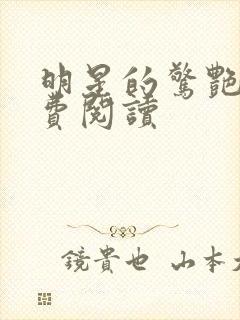 明星的驚艷
費閱讀
鏡貴也 山本